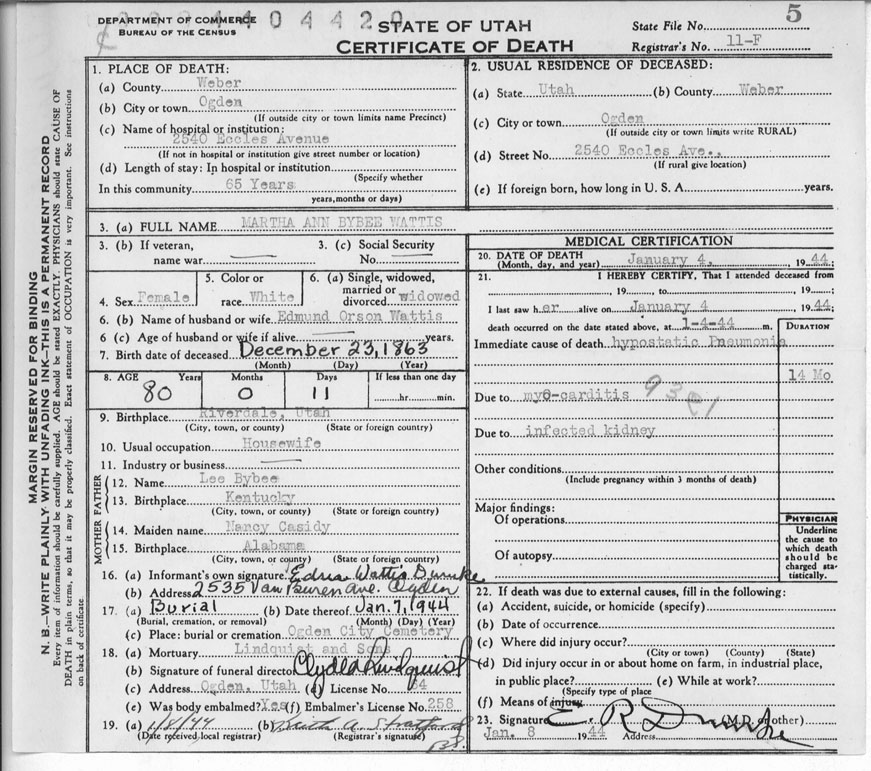 DEPARTMENT OF COMMERCE
BUREAU OF THE CENSUS
04404420
STATE OF UTAH
CERTIFICATE OF DEATH
State File No. 5
Registrar's No. 11-F
MARGIN RESERVED FOR BINDING
N. B.—WRITE PLAINLY WITH UNFADING INK—THIS IS A PERMANENT RECORD
Every item of information should be carefully supplied. AGE should be stated EXACTLY. PHYSICIANS should state CAUSE OF
DEATH in plain terms, so that it may be properly classified. Exact statement of OCCUPATION is very important. See instructions
on back of certificate
1. PLACE OF DEATH:
(a) County Weber
(b) City or town Ogden
(If outside city or town limits name Precinct)
(c) Name of hospital or institution:
2540 Eccles Avenue
(If not in hospital or institution give street number or location)
(d) Length of stay: In hospital or institution
(Specify whether
In this community 65 Years
years, months or days)
2. USUAL RESIDENCE OF DECEASED:
(a) State Utah (b) County Weber
(c) City or town Ogden
(If outside city or town limits write RURAL)
(d) Street No. 2540 Eccles Ave.,
(If rural give location)
(e) If foreign born, how long in U. S. A. years.
3. (a) FULL NAME MARTHA ANN BYBEE WATTIS
3. (b) If veteran,
name war
3. (c) Social Security
No.
4. Sex Female
5. Color or
race White
6. (a) Single, widowed,
married or
divorced widowed
6. (b) Name of husband or wife Edmund Orson Wattis
6 (c) Age of husband or wife if alive years.
7. Birth date of deceased December 23, 1863
(Month) (Day) (Year)
8. AGE Years Months Days If less than one day
80 0 11 hr. min.
9. Birthplace Riverdale, Utah
(City, town, or county) (State or foreign country)
10. Usual occupation Housewife
11. Industry or business
FATHER
12. Name Lee Bybee
13. Birthplace Kentucky
(City, town, or county) (State or foreign country)
MOTHER
14. Maiden name Nancy Casidy
15. Birthplace Alabama
(City, town, or county) (State or foreign country)
16. (a) Informant's own signature Edris Wattis Dumke
(b) Address 2535 Van Buren Ave. Ogden
17. (a) Burial (b) Date thereof Jan. 7, 1944
(Burial, cremation, or removal) (Month) (Day) (Year)
(c) Place: burial or cremation Ogden City Cemetery
18. (a) Mortuary Lindquist and Sons
(b) Signature of funeral director Clyde Lindquist
(c) Address Ogden, Utah (d) License No. 64
(e) Was body embalmed? Yes (f) Embalmer's License No. 258
19. (a) 1/8/44 (b)
(Date received local registrar) (Registrar's signature)
MEDICAL CERTIFICATION
20. DATE OF DEATH
(Month, day, and year) January 4, 1944
21. I HEREBY CERTIFY, That I attended deceased from
, 19 , to , 19 ;
I last saw her alive on January 4 1944;
death occurred on the date stated above, at 1-4-44 m.
DURATION
Immediate cause of death hypostatic Pneumonia
14 Mo
Due to myo-carditis
Due to infected kidney
Other conditions
(Include pregnancy within 3 months of death)
Major findings:
Of operations
Of autopsy
PHYSICIAN
Underline
the cause to
which death
should be
charged sta-
tistically.
22. If death was due to external causes, fill in the following:
(a) Accident, suicide, or homicide (specify)
(b) Date of occurrence
(c) Where did injury occur?
(City or town) (County) (State)
(d) Did injury occur in or about home on farm, in industrial place,
in public place? (e) While at work?
(Specify type of place
(f) Means of injury
23. Signature E. R. Dumke (M.D. or other)
Jan. 8 1944 Address